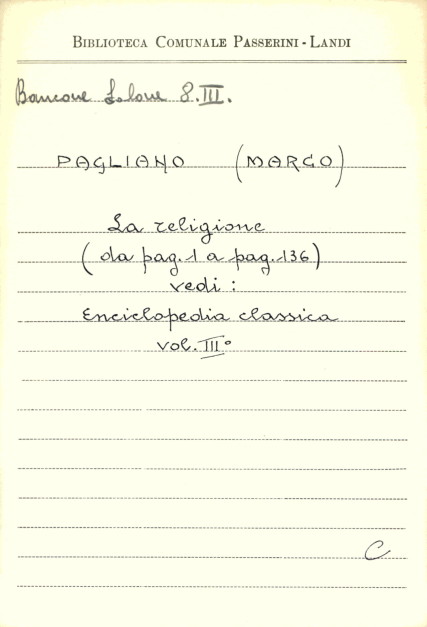 BIBLIOTECA COMUNALE PASSERINI - LANDI
Bancone Salone 8.III.
PAGLIANO (MARCO)
La religione
(da pag. 1 a pag. 136)
vedi :
Enciclopedia classica
vol. III°
C